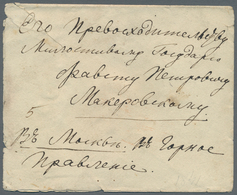 Его Превосходительству
Милостивому Государю
Фавсту Петровичу
Макеровскому
5
Въ Москвѣ. Въ Горное
Правленіе.